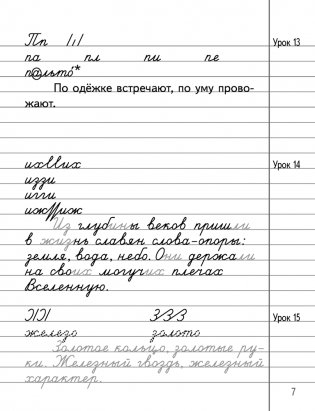 Пп /ı/ Урок 13
па пл пи пе
п@льто́*
По одёжке встречают, по уму прово-
жают.
Урок 14
иззи
игги
Из глубины веков пришли
в жизнь славян слова-опоры:
земля, вода, небо. Они держали
на своих могучих плечах
Вселенную.
ЗЗЗ Урок 15
железо золото
Золотое кольцо, золотые ру-
ки. Железный гвоздь, железный
характер.
7